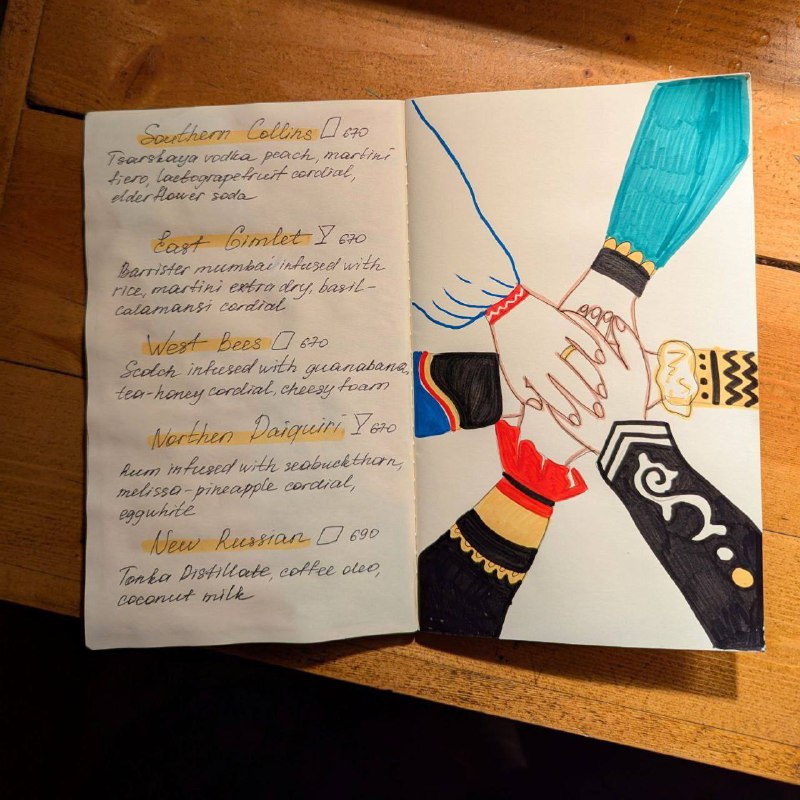 Southern Collins 670
Tsarskaya vodka peach, martini
fiero, lactograpefruit cordial,
elderflower soda
East Gimlet 670
Barrister mumbai infused with
rice, martini extra dry, basil-
calamansi cordial
West Bees 670
Scotch infused with guanabana,
tea-honey cordial, cheesy foam
Northen Daiquiri 670
Rum infused with seabuckthorn,
melissa-pineapple cordial,
eggwhite
New Russian 690
Tonka Distillate, coffee oleo,
coconut milk